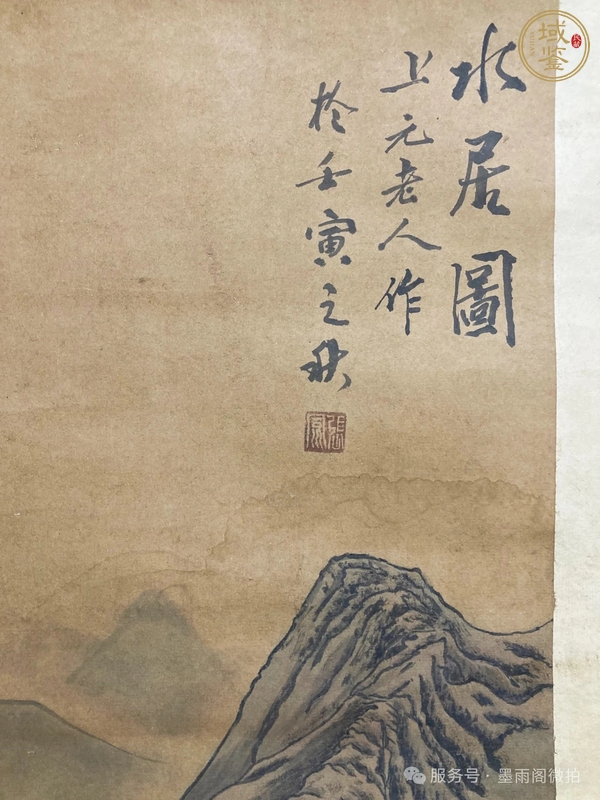 水居圖
上元老人作
於壬寅之秋
張風
域鉴
服务号·墨雨阁微拍